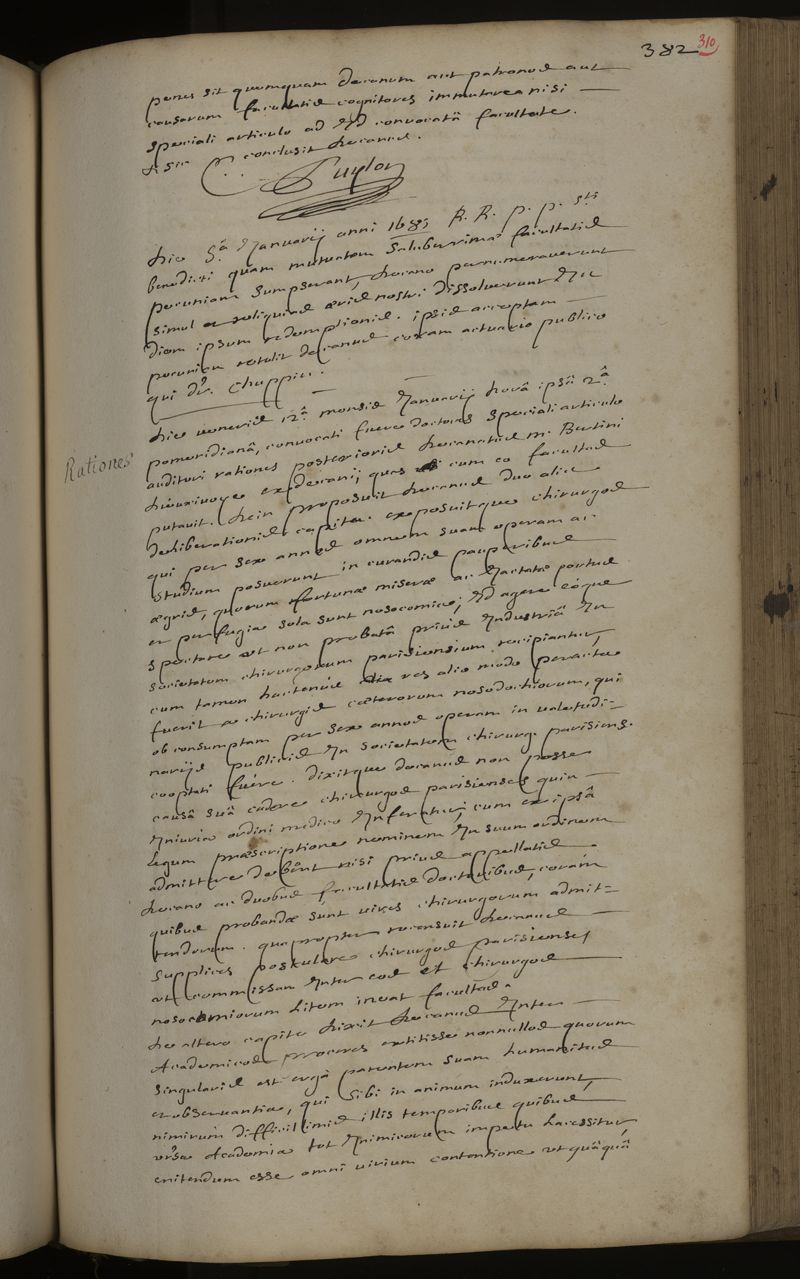 382 310
penes sit quemquam decanum aut patronos aut
causarum facultatis cognitores immutare nisi
speciali articulo ad id convocatâ facultate.
& sic conclusit decanus.
Puylon
die 5ᵃ Januarij anni 1685 R. R. p. p. sᵗⁱ
benedicti quam mutuatam saluberrimae facultatis
pecuniam sumpserant, decano pernumeraverunt
simul et reliquias aeris nostri dissolverunt in
diem ipsum redemptionis. ipsis acceptam
pecuniam retulit decanus coram actuario publico
qui dr. Chuppin.
Rationes
die veneris 12ᵃ mensis Januarij horâ ipsâ 2ᵃ
pomeridianâ, convocati fuere doctores speciali articulo
audituri rationes posterioris decanatus m. Bertini
dieuxivoye exdecani; quas cum eo facultas
putavit. dein proposuit decanus duo alia
deliberationis capita. exposuitque chirurgos
qui per sex annos omnem suam operam ac
studium posuerunt in curandis pauperibus
aegris, quorum fortunae miserae ac iactatae portus
et perfugia sola sunt nosocomia; id agere eòque
spectare ut non probatâ prius industriâ in
societatem chirurgorum parisiensium recipiantur,
cum tamen hactenus res alio modo peracta
fuerit a chirurgis caeterorum nosodochiorum, qui
ob consumptam per sex annos operam in valetudi=
narijs publicis in societatem chirurg. parisiens.
cooptati fuére. dixitque decanus non posse
causâ suâ cadere chirurgos parisienses quin
iniuria ordini medico inferatur; cum ex ipsâ
legum praescriptione neminem in suum ordinem
admittere debeant nisi prius appellatis
decano ac duobus facultatis doctoribus, coram
quibus probandae sunt vires chirurgorum admit=
tendorum. quapropter recensuit decanus
supplices postulare chirurgos parisienses
ut commissam inter eos et chirurgos
nosocomiorum litem ineat facultas.
de altero capite dixit decanus inter
Academicos proceres extitisse nonnullos quorum
singularis est ergà parentem suam humanitas
et observantia, qui sibi in animum induxerunt,
nimirum difficillimis illis temporibus quibus
vrsa Academia tot inimicorum impetu lacessitur,
enitendum esse omni virium contentione ut quâquâ